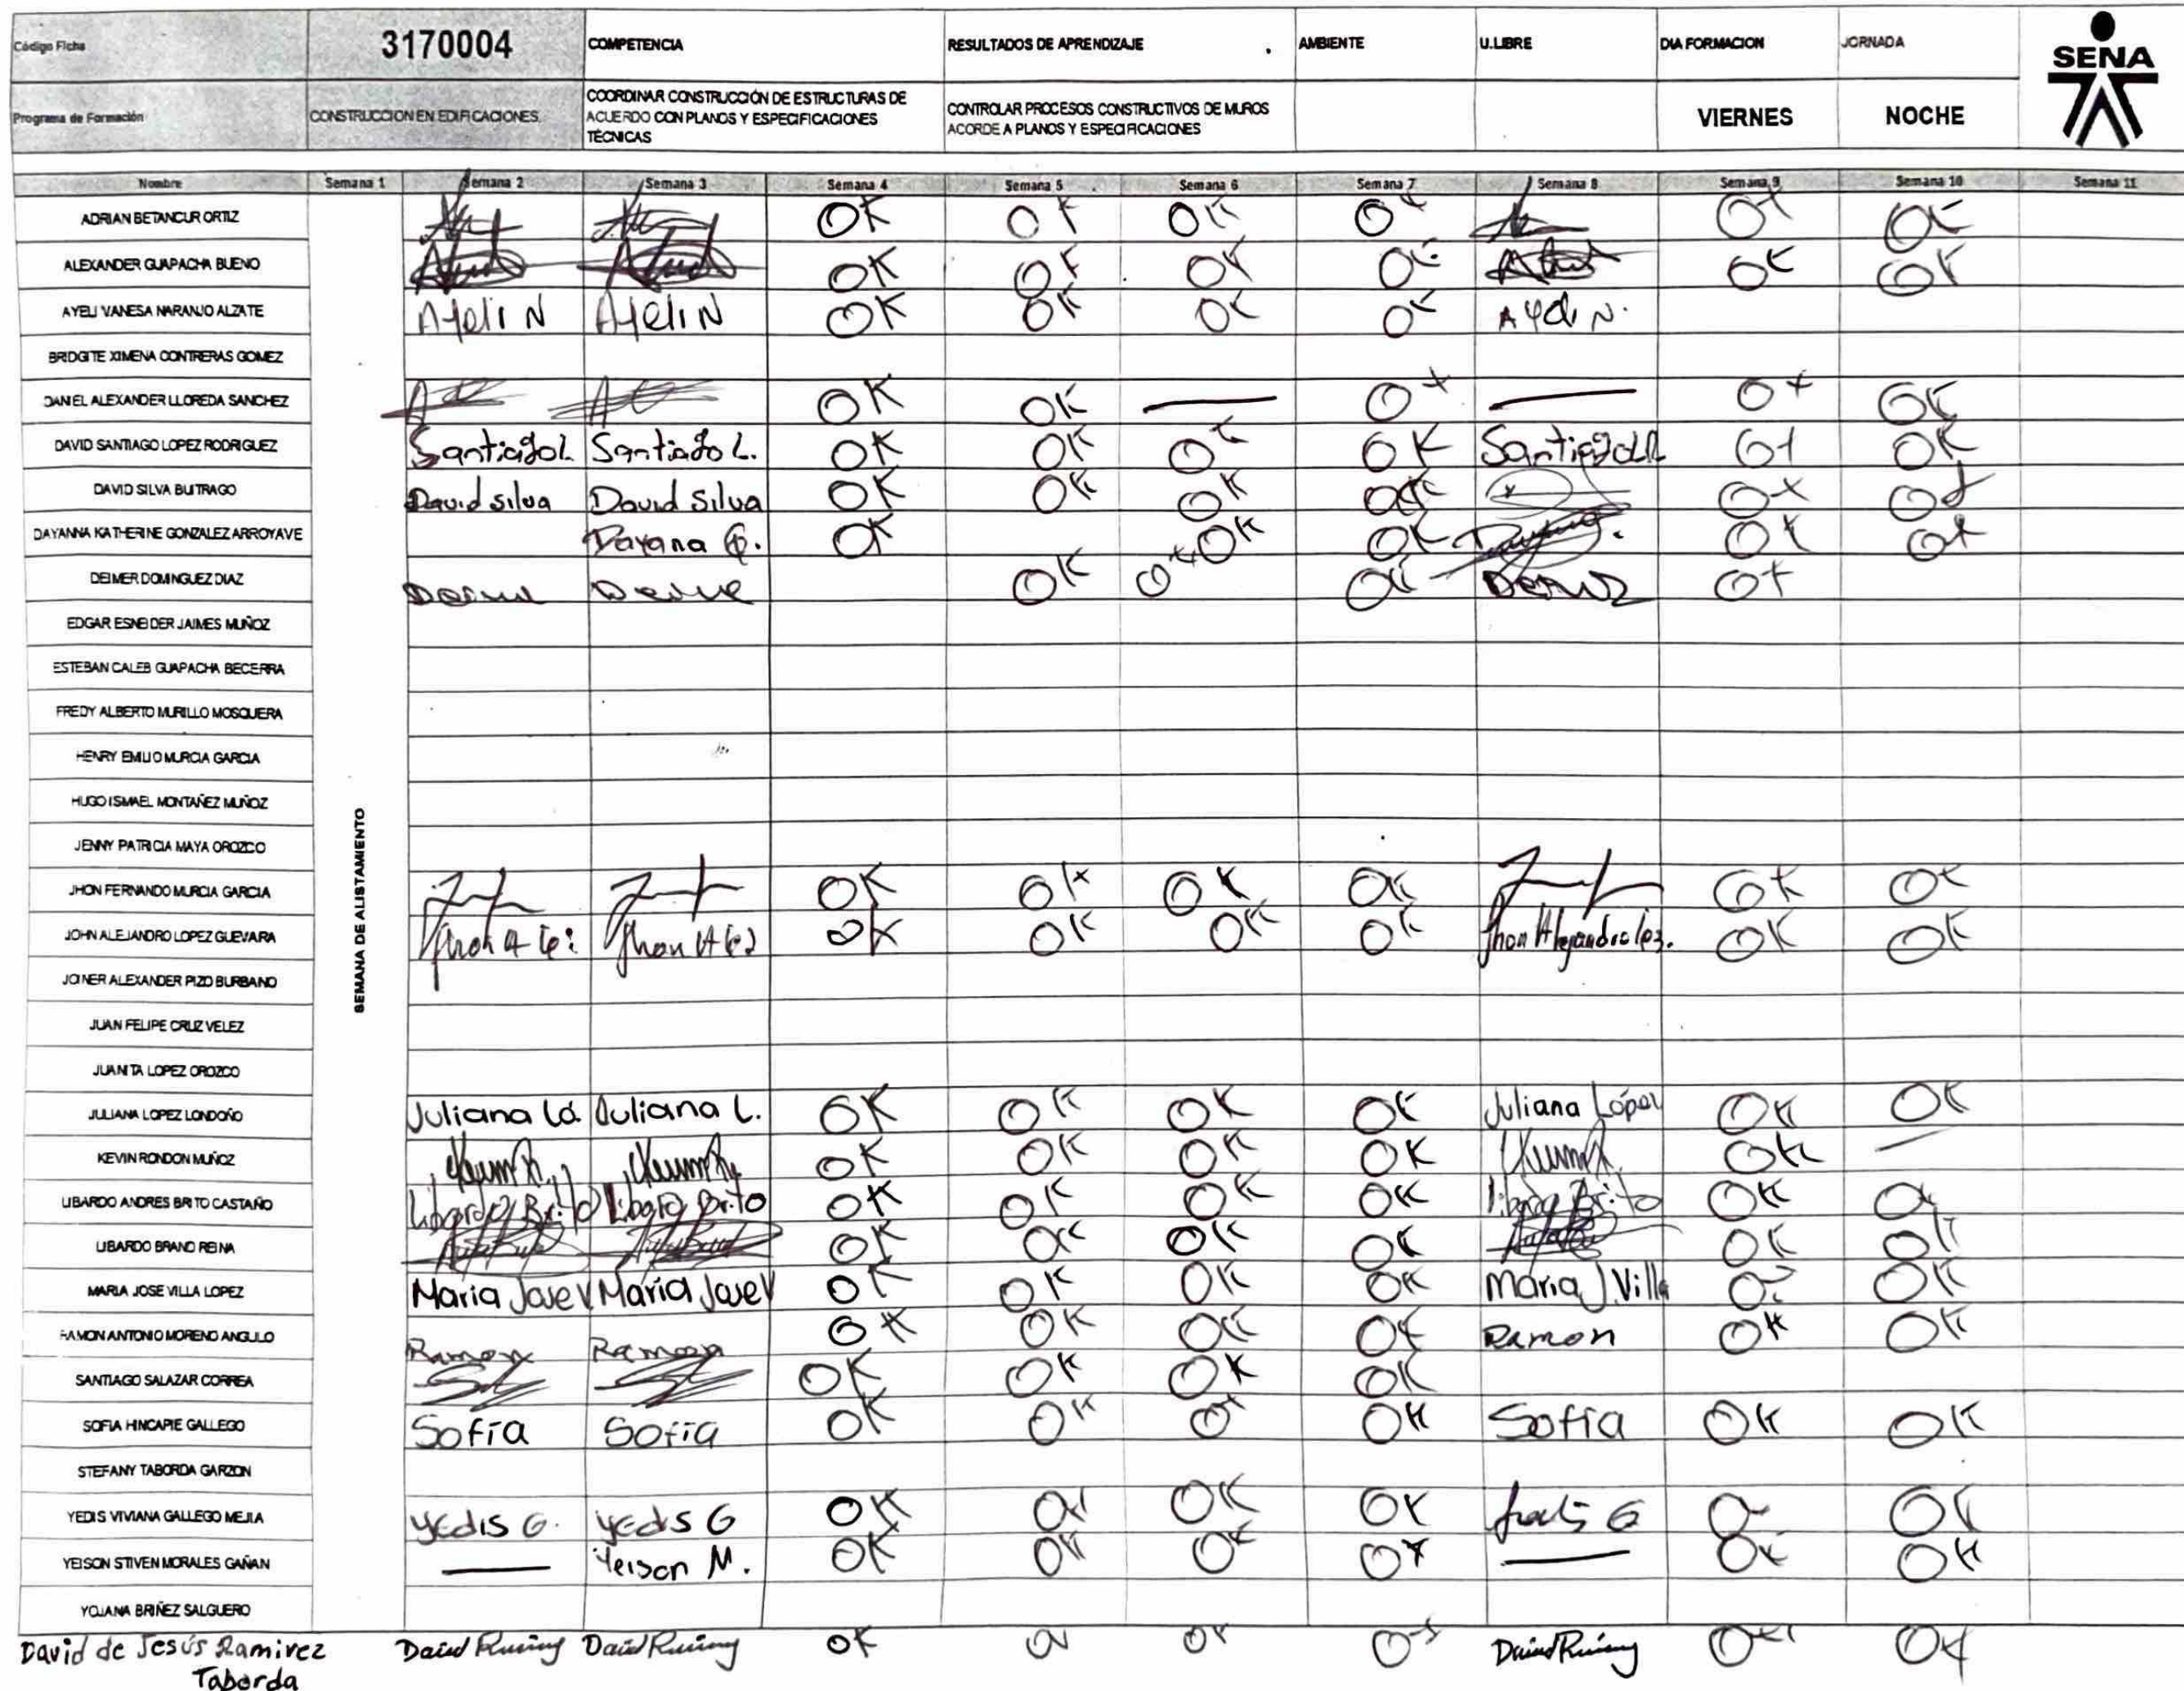 Código Ficha 3170004 COMPETENCIA RESULTADOS DE APRENDIZAJE AMBIENTE U.LIBRE DIA FORMACION JORNADA
SENA
Programa de Formación CONSTRUCCION EN EDIFICACIONES. COORDINAR CONSTRUCCIÓN DE ESTRUCTURAS DE ACUERDO CON PLANOS Y ESPECIFICACIONES TÉCNICAS CONTROLAR PROCESOS CONSTRUCTIVOS DE MUROS ACORDE A PLANOS Y ESPECIFICACIONES VIERNES NOCHE
Nombre Semana 1 Semana 2 Semana 3 Semana 4 Semana 5 Semana 6 Semana 7 Semana 8 Semana 9 Semana 10 Semana 11
SEMANA DE ALISTAMIENTO
ADRIAN BETANCUR ORTIZ OK OK OK OK OK OK
ALEXANDER GUAPACHA BUENO OK OK OK OK OK OK
AYELI VANESA NARANJO ALZATE Ayeli N Ayeli N OK OK OK OK Ayeli N.
BRIDGITE XIMENA CONTRERAS GOMEZ
DANIEL ALEXANDER LLOREDA SANCHEZ OK OK — OK — OK OK
DAVID SANTIAGO LOPEZ RODRIGUEZ Santiago L Santiago L. OK OK OK OK Santiago LR OK OK
DAVID SILVA BUITRAGO David silva David Silva OK OK OK OK OK OK
DAYANNA KATHERINE GONZALEZ ARROYAVE Dayana G. OK OK OK OK OK
DEIMER DOMINGUEZ DIAZ OK OK OK OK
EDGAR ESNEIDER JAIMES MUÑOZ
ESTEBAN CALEB GUAPACHA BECERRA
FREDY ALBERTO MURILLO MOSQUERA
HENRY EMILIO MURCIA GARCIA
HUGO ISMAEL MONTAÑEZ MUÑOZ
JENNY PATRICIA MAYA OROZCO
JHON FERNANDO MURCIA GARCIA OK OK OK OK OK OK
JOHN ALEJANDRO LOPEZ GUEVARA OK OK OK OK Jhon Alejandro OK OK
JOINER ALEXANDER PIZO BURBANO
JUAN FELIPE CRUZ VELEZ
JUANITA LOPEZ OROZCO
JULIANA LOPEZ LONDOÑO Juliana Ló Juliana L. OK OK OK OK Juliana López OK OK
KEVIN RONDON MUÑOZ OK OK OK OK OK —
LIBARDO ANDRES BRITO CASTAÑO Libardo Brito Brito OK OK OK OK Brito OK OK
LIBARDO BRAND REINA OK OK OK OK OK OK
MARIA JOSE VILLA LOPEZ Maria Jose V Maria Jose V OK OK OK OK Maria J. Villa OK OK
RAMON ANTONIO MORENO ANGULO Ramon Ramon OK OK OK OK Ramon OK OK
SANTIAGO SALAZAR CORREA OK OK OK OK
SOFIA HINCAPIE GALLEGO Sofía Sofía OK OK OK OK Sofía OK OK
STEFANY TABORDA GARZON
YEDIS VIVIANA GALLEGO MEJIA Yedis G. Yedis G OK OK OK OK G OK OK
YEISON STIVEN MORALES GAÑAN — Yeison M. OK OK OK OK — OK OK
YOJANA BRIÑEZ SALGUERO
David de Jesús Ramirez OK OK OK OK OK OK
Taborda